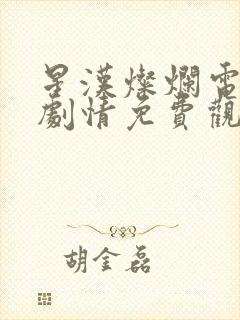 星漢燦爛電
劇情免費觀
胡金磊